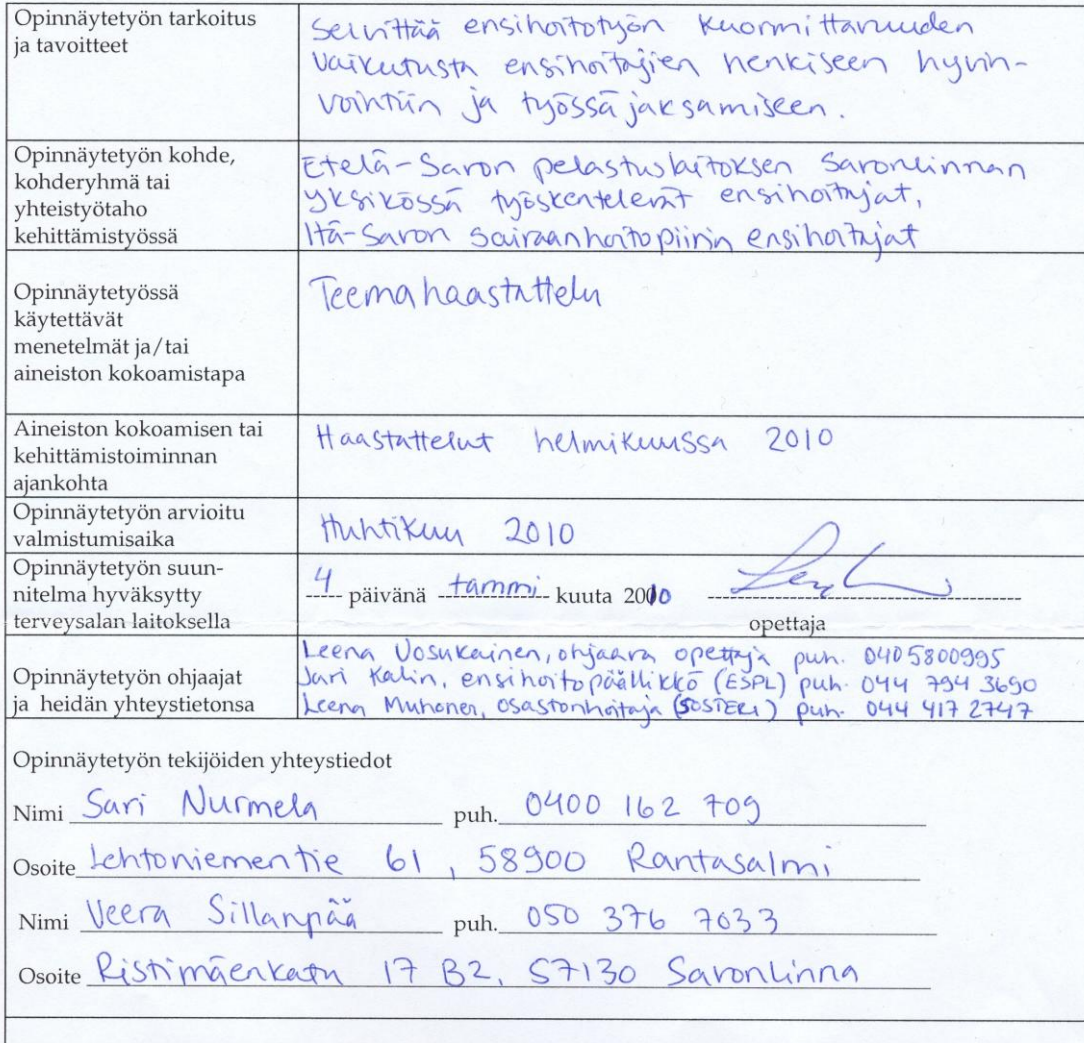 Opinnäytetyön tarkoitus
ja tavoitteet
Selvittää ensihoitotyön kuormittavuuden
vaikutusta ensihoitajien henkiseen hyvin-
vointiin ja työssä jaksamiseen.
Opinnäytetyön kohde,
kohderyhmä tai
yhteistyötaho
kehittämistyössä
Etelä-Savon pelastuslaitoksen Savonlinnan
yksikössä työskentelevät ensihoitajat,
Itä-Savon sairaanhoitopiirin ensihoitajat
Opinnäytetyössä
käytettävät
menetelmät ja/tai
aineiston kokoamistapa
Teemahaastattelu
Aineiston kokoamisen tai
kehittämistoiminnan
ajankohta
Haastattelut helmikuussa 2010
Opinnäytetyön arvioitu
valmistumisaika
Huhtikuu 2010
Opinnäytetyön suun-
nitelma hyväksytty
terveysalan laitoksella
4 päivänä tammi kuuta 2010
opettaja
Opinnäytetyön ohjaajat
ja heidän yhteystietonsa
Leena Uosukainen, ohjaava opettaja puh. 0405800995
Jari Kalin, ensihoitopäällikkö (ESPL) puh. 044 794 3690
Leena Muhonen, osastonhoitaja (SOSTERI) puh. 044 417 2747
Opinnäytetyön tekijöiden yhteystiedot
Nimi Sari Nurmela puh. 0400 162 709
Osoite Lehtoniementie 61, 58900 Rantasalmi
Nimi Veera Sillanpää puh. 050 376 7033
Osoite Ristimäenkatu 17 B2, 57130 Savonlinna